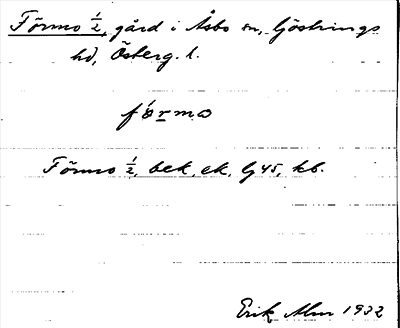 Förmo ½, gård i Åsbo sn, Göstrings
hd, Österg. l.
förmo
Förmo ½, bek. ek. Gj 45, kb.
Erik Alm 1932